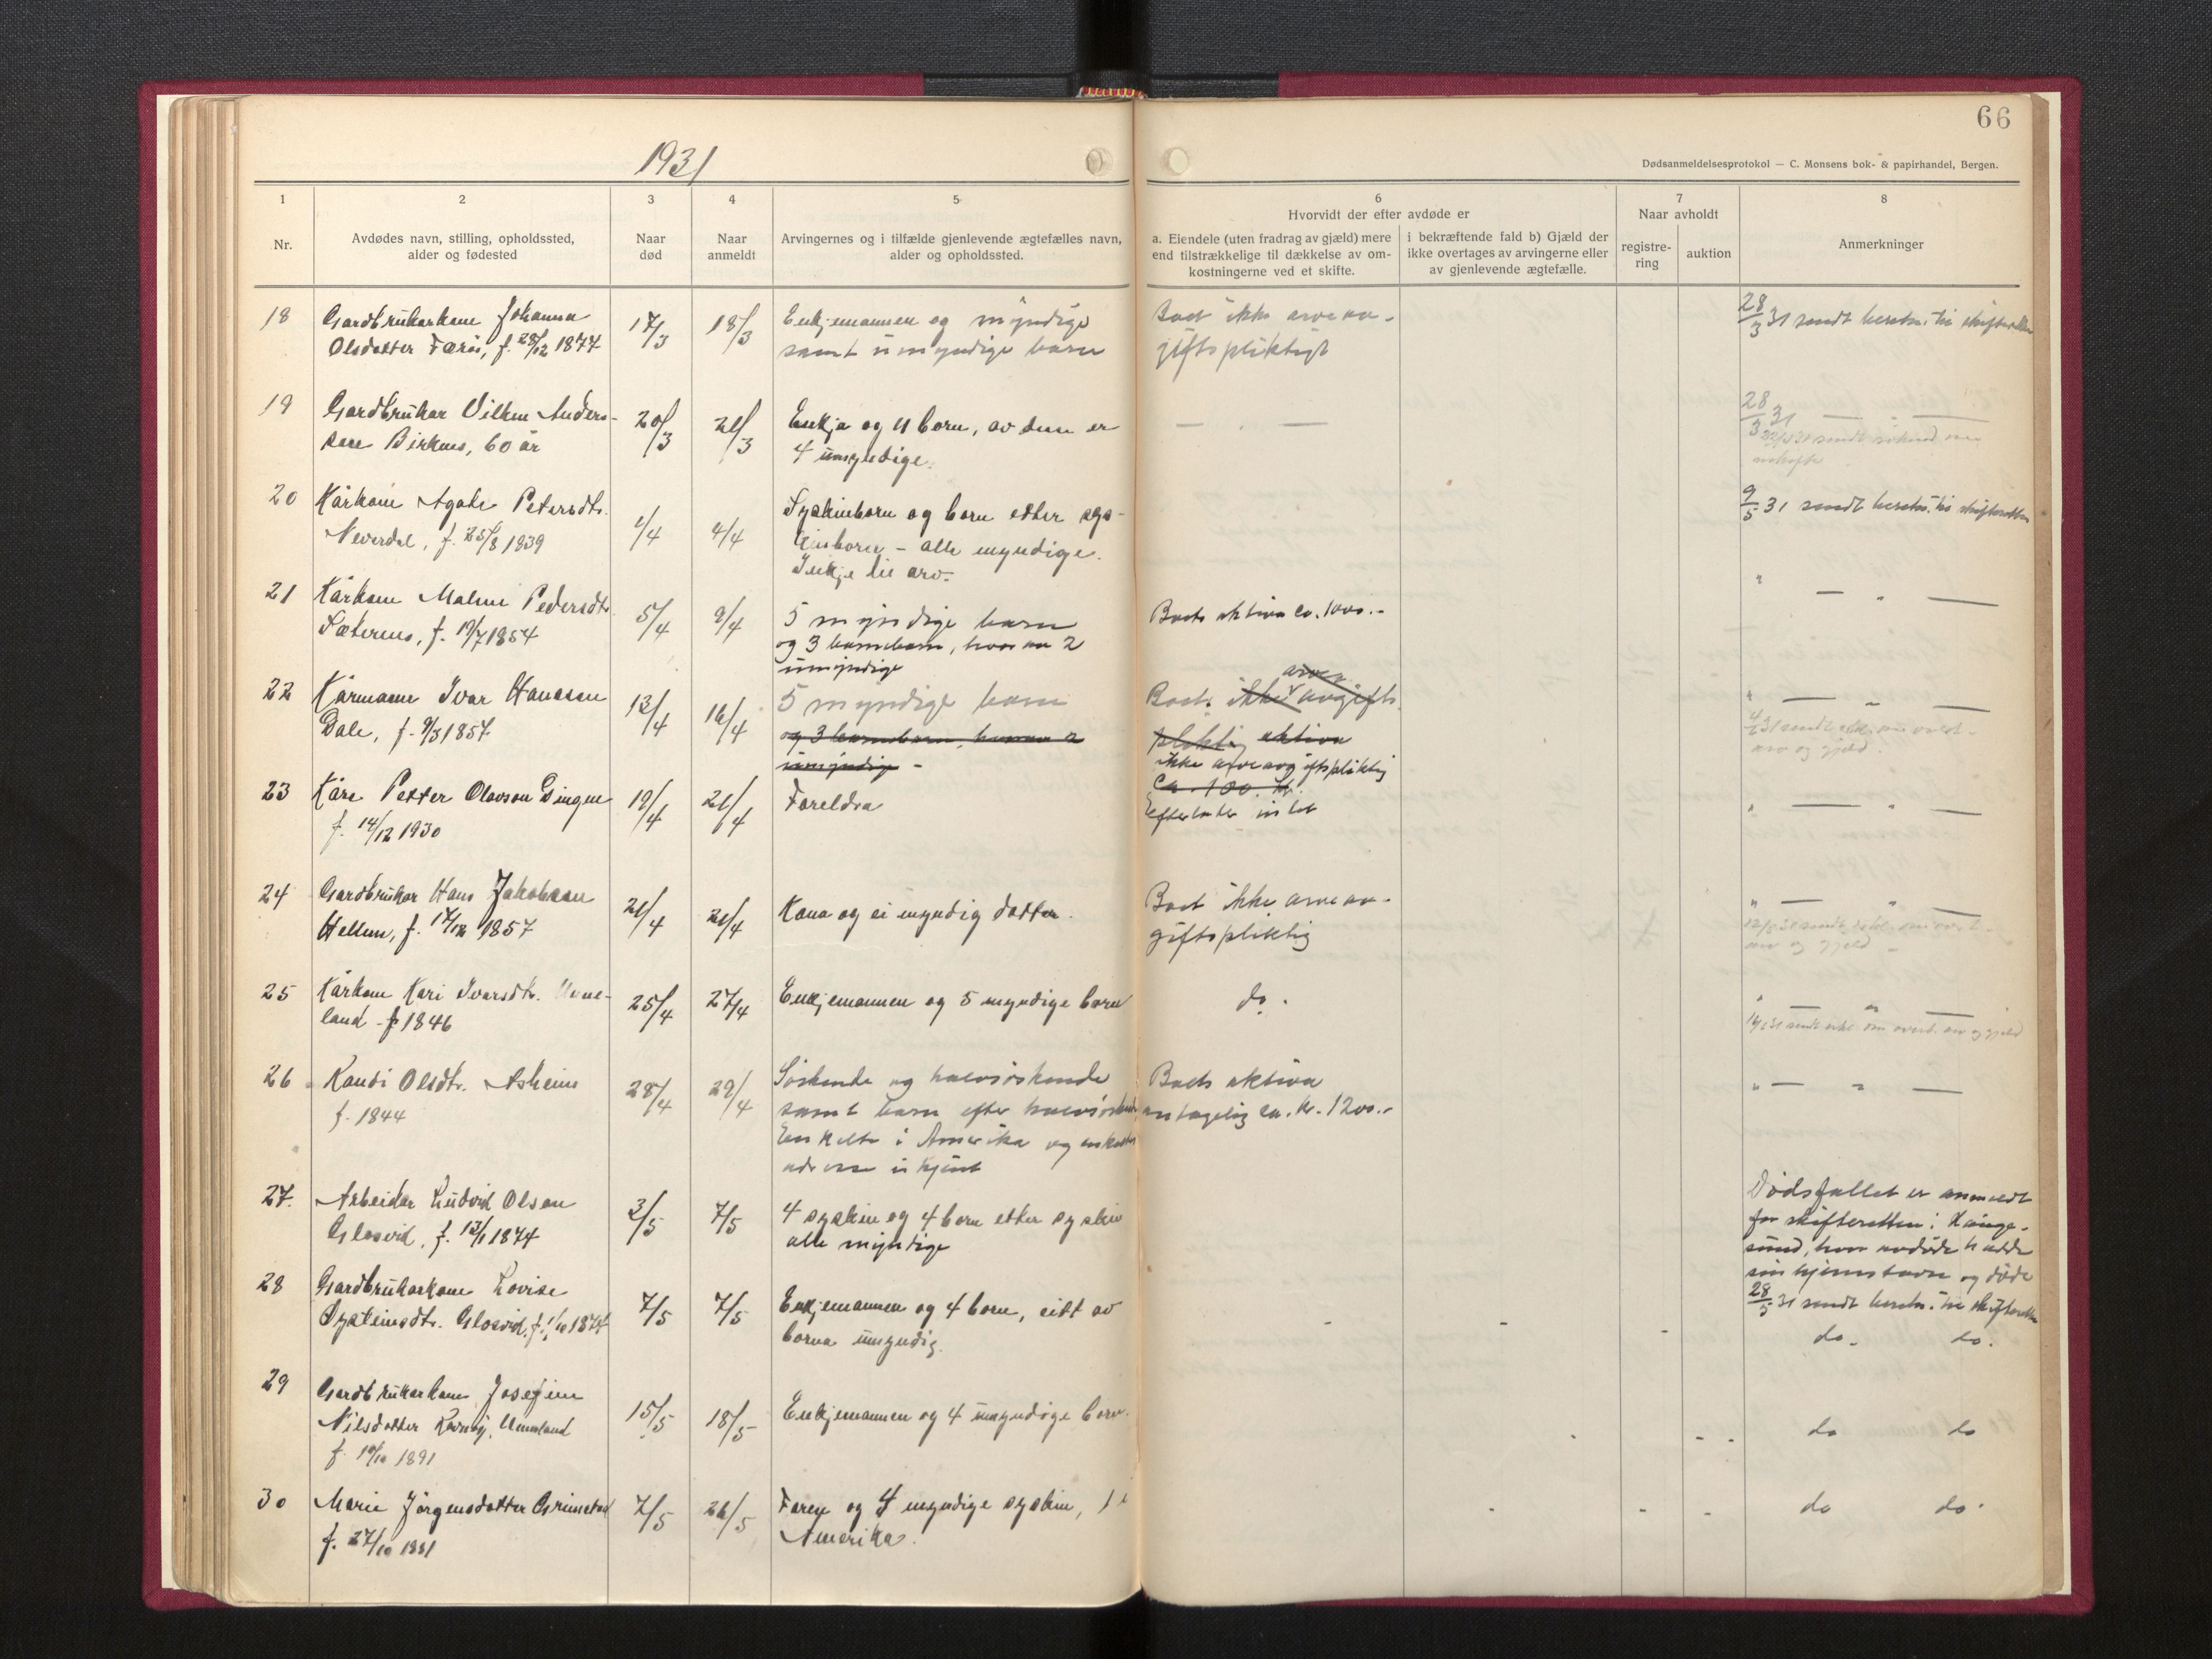 66
1931
Dødsanmeldelsesprotokol — C. Monsens bok- & papirhandel, Bergen.
1 2 3 4 5 6 7 8
Nr.
Avdødes navn, stilling, opholdssted,
alder og fødested
Naar
død
Naar
anmeldt
Arvingernes og i tilfælde gjenlevende ægtefælles navn,
alder og opholdssted.
Hvorvidt der efter avdøde er
a. Eiendele (uten fradrag av gjæld) mere
end tilstrækkelige til dækkelse av om-
kostningerne ved et skifte.
i bekræftende fald b) Gjæld der
ikke overtages av arvingerne eller
av gjenlevende ægtefælle.
Naar avholdt
registre-
ring
auktion
Anmerkninger
18 Gardbrukarkone Johanna
Olsdotter Færøs, f. 28/12 1874
17/3
18/3
Enkjemannen og myndige
samt umyndige barn
Boet ikke arveav-
giftspliktigt
28/3 31 sendt beretn. til skifteretten
19 Gardbrukar Vilhem Anders-
sen Birknes, 60 år
20/3
21/3
Enkja og 11 born, av dem er
4 umyndige.
— " —
28/3 31 — " —
20 Kårkone Agate Petersdtr.
Neverdal, f. 25/8 1839
1/4
4/4
Syskinborn og born etter sys-
kinborn - alle myndige.
Inkje til arv.
9/5 31 sendt beretn. til skifteretten
21 Kårkone Malene Pedersdtr.
Sæternes, f. 19/7 1854
5/4
9/4
5 myndige barn
og 3 barnebarn, hvorav 2
umyndige
Boets aktiva ca. 1000.-
" — " —
22 Kårmann Ivar Hansson
Dale, f. 9/3 1857
13/4
16/4
5 myndige barn
og 3 barnebarn, hvorav 2
umyndige -
arve
Boet ikke avgifts
pliktig aktiva
ikke arveavgiftspliktig
ca. 100 kr.
" — " —
arv og gjeld.
23 Kåre Petter Olavson Dingen
f. 14/12 1930
19/4
21/4
Foreldra
Efterlater intet
" — " —
24 Gardbrukar Hans Jakobsen
Hellem, f. 17/12 1857
21/4
21/4
Kona og ei myndig dotter.
Boet ikke arveav-
giftspliktig
" — " —
arv og gjeld -
25 Kårkone Kari Ivarsdtr.
land f. 1846
25/4
27/4
Enkjemannen og 5 myndige born
do.
" — " —
sendt erkl. om overt. arv og gjeld
26 Randi Olsdtr. Askeim
f. 1844
28/4
29/4
Søskende og halvsøskende
samt barn efter halvsøskende
Enkelte i Amerika og enkeltes
adresse ukjent
Boets aktiva
antagelig ca. kr. 1200.-
" — " —
27. Arbeidar Ludvik Olsen
Glosvid, f. 13/1 1874
3/5
7/5
4 syskin og 4 born etter syskin
alle myndige
Dødsfallet er anmeldt
for skifteretten i Hauge-
sund, hvor avdøde hadde
sin hjemstavn og døde
28 Gardbrukarkone Lovise
Systeinsdtr. Glosvid, f. 1/10 1874
7/5
7/5
Enkjemannen og 4 born, eitt av
borna umyndig.
28/5 31 sendt beretn. til skifteretten
do. do.
29 Gardbrukarkone Josefine
Nilsdotter
f. 19/10 1891
15/5
18/5
Enkjemannen og 4 umyndige born.
do do
30 Marie Jørgensdotter Grimstad
f. 27/10 1881
7/5
26/5
Foreldre og 4 myndige syskin, 1 i
Amerika.
do do.